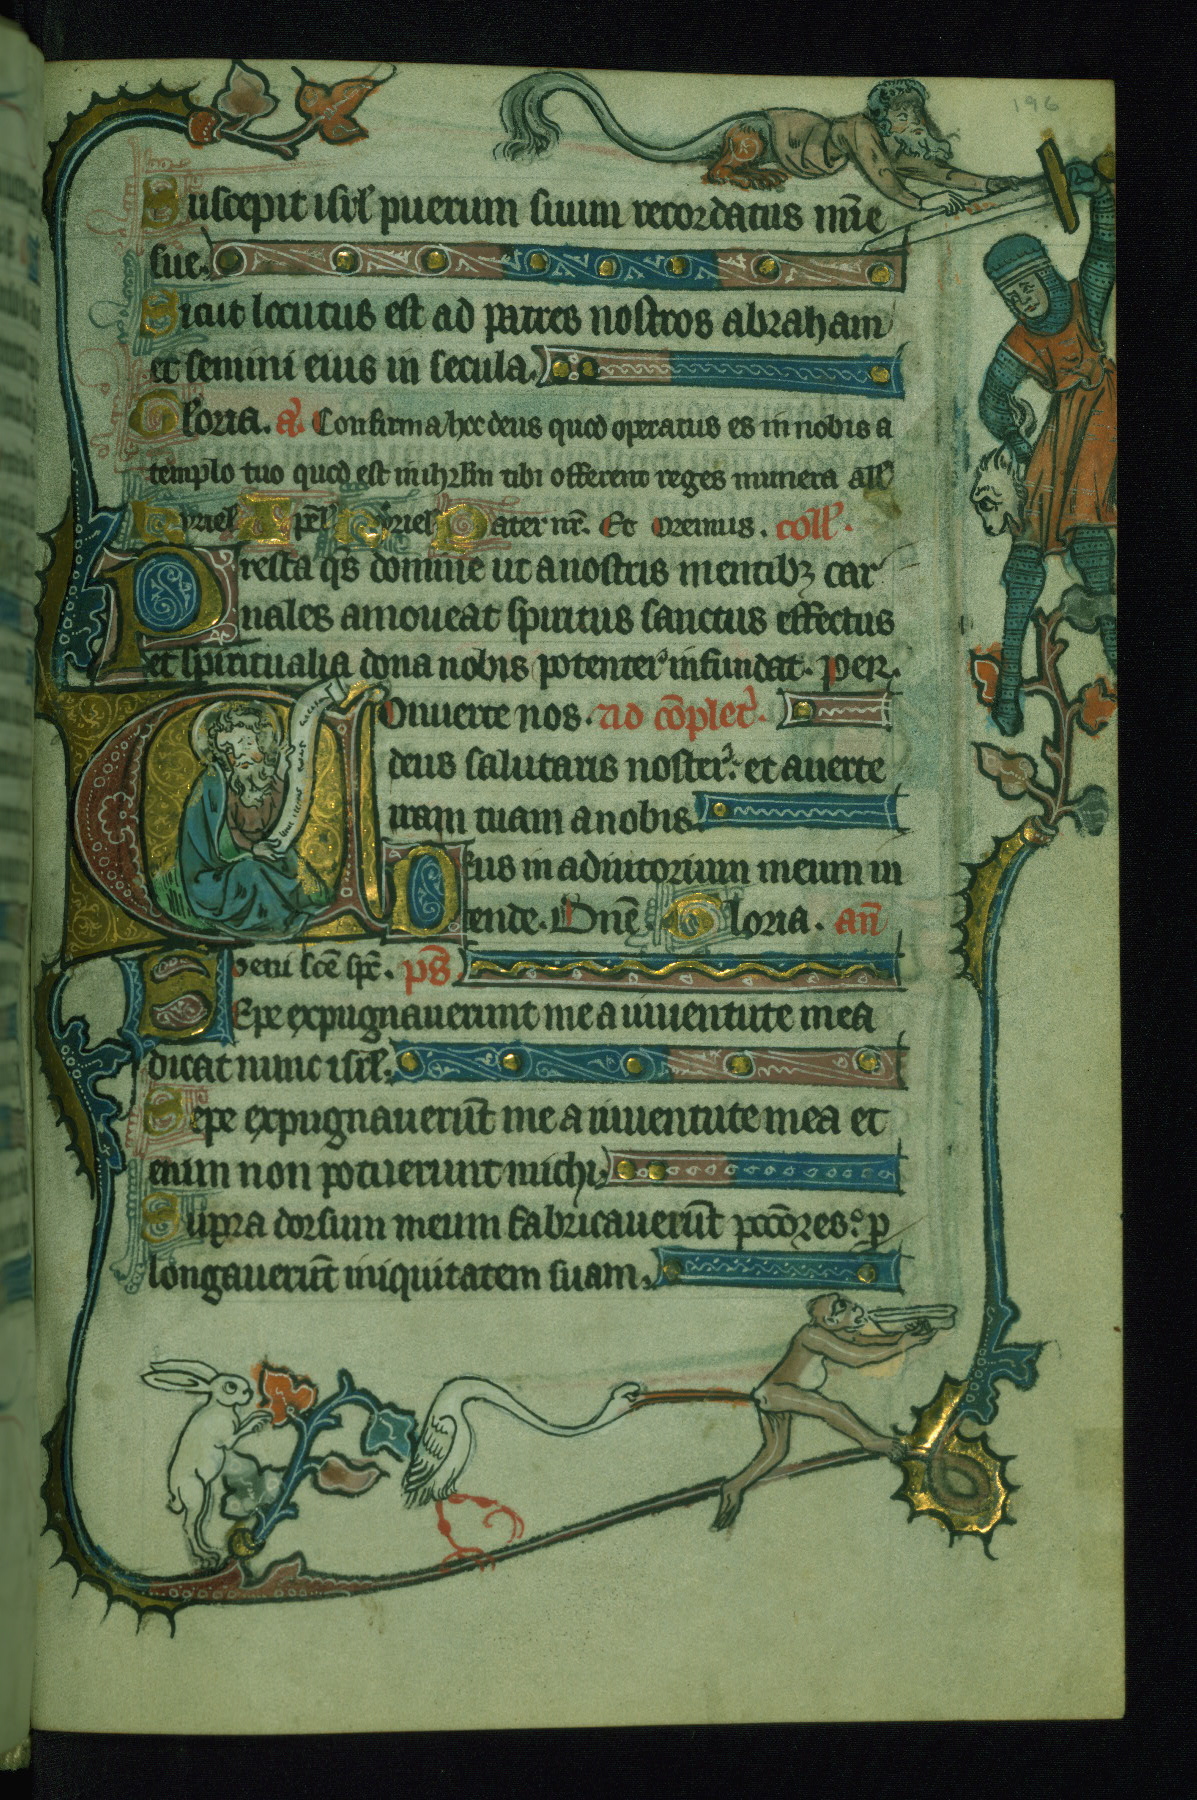 196
Suscepit isrl' puerum suum recordatus mie
sue.
Sicut locutus est ad patres nostros abraham
et semini eius in secula.
Gloria. a. Confirma hoc deus quod operatus es in nobis a
templo tuo quod est in ihrlm tibi offerent reges munera all'
kyriel' xpel' kyriel' Pater nr. Et Oremus. coll'.
Presta qs domine ut a nostris mentibȝ car
nales amoueat spiritus sanctus effectus
et spiritualia dona nobis potenter infundat. per.
Conuerte nos. ad complet.
deus salutaris noster: et auerte
iram tuam a nobis.
Deus in adiutorium meum in
tende. Dne. Gloria. an
veni sce spc. ps
Sepe expugnauerunt me a iuuentute mea
dicat nunc isrl'.
Sepe expugnauerut me a iuuentute mea et
enim non potuerunt michi.
Supra dorsum meum fabricauerut pccores: p
longauerut iniquitatem suam.